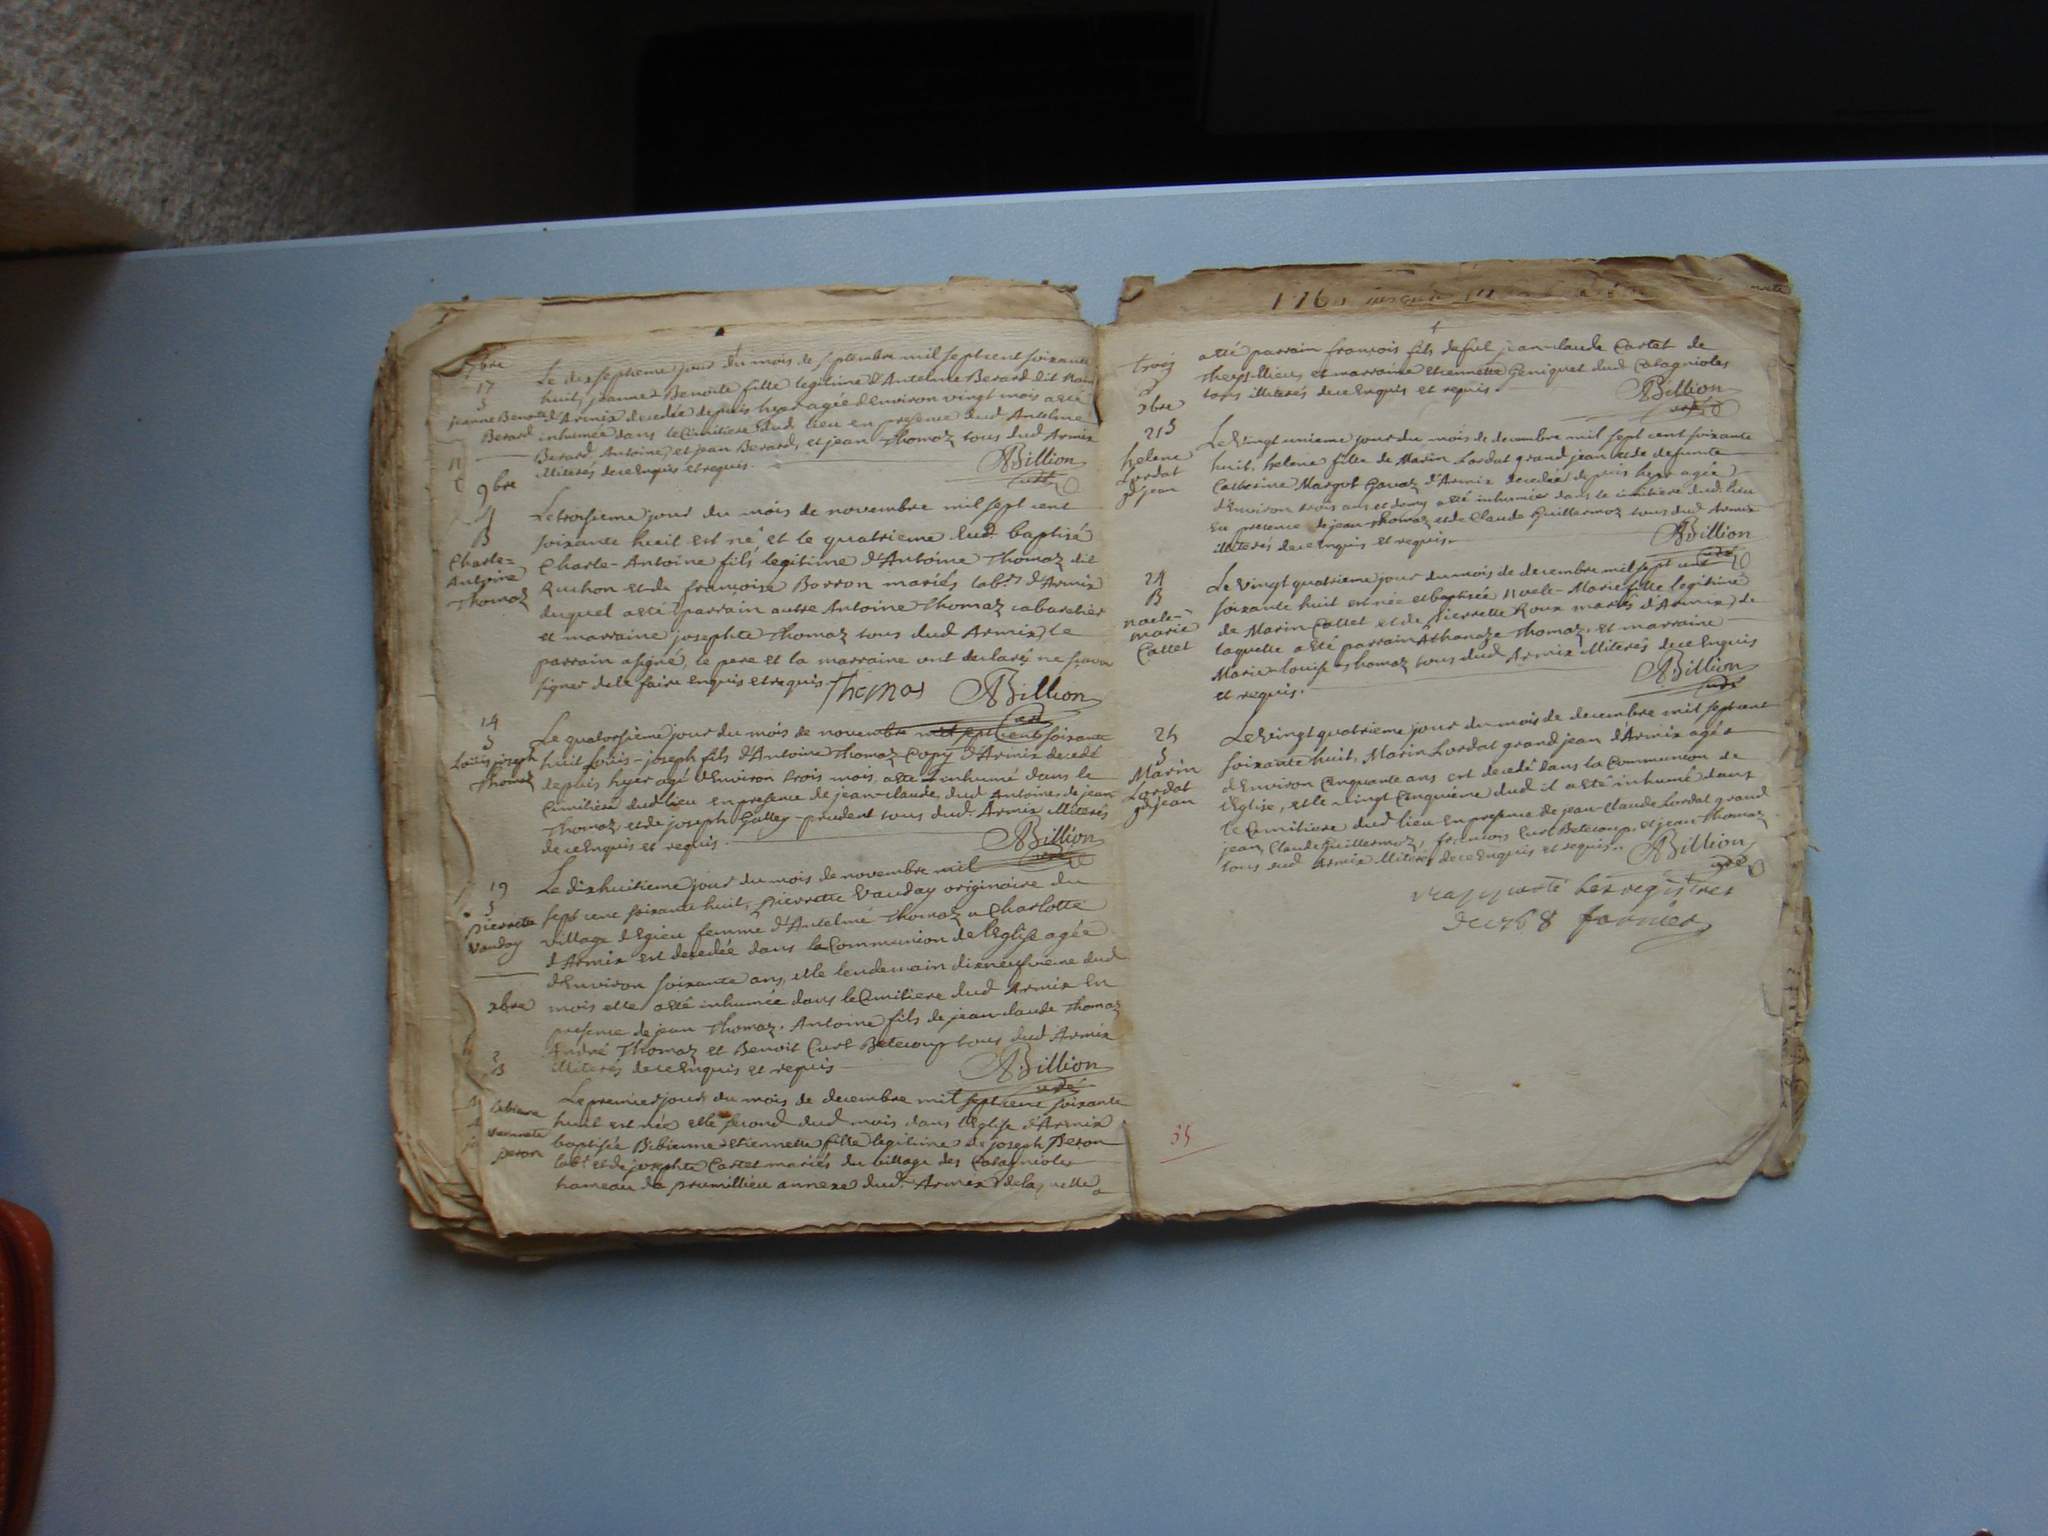 7bre
17
S
jeanne Benoite
Berard
Le dixseptieme jour du mois de septembre mil sept cent soixante
huit, jeanne Benoite fille legitime d'Antelme Berard dit
d'Armix decedée depuis hyer agée d'Environ vingt mois a eté
inhumée dans le Cimitiere dud lieu en presence dud Antelme
Berard, Antoine, et jean Berard, et jean Thomaz tous dud Armix
illiterés de ce Enquis et requis.
ABillion
curé
9bre
4
B
Charle-
Antoine
Thomaz
Le troisieme jour du mois de novembre mil sept cent
soixante huit est né, et le quatrieme dud. baptisé
Charle-Antoine fils legitime d'Antoine Thomaz dit
Ruchon et de françoise Borron mariés lab.rs d'Armix
duquel a eté parrain autre Antoine Thomaz cabaretier
et marraine josephte Thomaz tous dud Armix, le
parrain a signé, le pere et la marraine ont declaré ne scavoir
signer de le faire enquis et requis.
Thomas ABillion
curé
14
S
Louis joseph
Thomaz
Le quatorsieme jour du mois de novembre mil sept cent soixante
huit Louis-joseph fils d'Antoine Thomaz Copy d'Armix decedé
depuis hyer agé d'Environ trois mois, a eté inhumé dans le
Cimitiere dud lieu en presence de jean-claude, dud Antoine, de jean
Thomaz, et de joseph Gallay-prudent tous dud. Armix illiterés
de ce Enquis et requis.
ABillion
curé
19
S
pierrette
Vauday
Le dixhuitieme jour du mois de novembre mil
sept cent soixante huit, pierrette Vauday originaire du
village d'Egieu femme d'Antelme Thomaz a Charlotte
d'Armix est decedée dans la Communion de l'Eglise agée
d'Environ soixante ans, et le lendemain dixneufvieme dud
mois elle a eté inhumée dans le Cimitiere dud Armix En
presence de jean Thomaz, Antoine fils de jean-claude Thomaz
André Thomaz et Benoit Curt Betecoup tous dud Armix
illiterés de ce Enquis et requis
ABillion
curé
xbre
2
B
bibiane
peron
Le premier jour du mois de decembre mil sept cent soixante
huit est née et le second dud mois dans l'Eglise d'Armix
baptisée Bibienne Etiennette fille legitime de joseph Peron
lab.r et de josephte Cartet mariés du village des Catagnioles
hameau de prumillieu annexe dud. Armix de laquelle
a eté parrain françois fils de feu jean-claude Cartet de
Thezillieu, et marraine Etiennette Geniquet dud Catagnioles
tous illiterés de ce Enquis et requis.
ABillion
curé
trois
xbre
21 S
helene
Lordat
gd jean
Le Vingt unieme jour du mois de decembre mil sept cent soixante
huit, helene fille de Marin Lordat grand jean et de defunte
Catherine Margot Gavaz d'Armix decedée depuis hyer agée
d'Environ trois ans et demy a eté inhumée dans le cimitiere dud. lieu
En presence de jean Thomaz et de Claude Guillermoz tous dud Armix
illiterés de ce Enquis et requis.
ABillion
curé
24
B
noele-
marie
Callet
Le Vingt quatrieme jour du mois de decembre mil sept cent
soixante huit est née et baptisée Noele-Marie fille legitime
de Marin Callet et de Pierrette Roux mariés d'Armix, de
laquelle a eté parrain Athanaze Thomaz, et marraine
Marie-Louise Thomaz tous dud Armix illiterés de ce Enquis
et requis.
ABillion
curé
25
S
Marin
Lordat
gd jean
Le Vingt quatrieme jour du mois de decembre mil sept cent
soixante huit, Marin Lordat grand jean d'Armix agé
d'Environ Cinquante ans est decedé dans la Communion de
l'Eglise, et le vingt Cinquiéme dud il a eté inhumé dans
le Cimitiere dud lieu En presence de jean-claude Lordat grand
jean, Claude Guillermoz, françois Curt Betecoup, et jean Thomaz
tous dud Armix illiterés de ce Enquis et requis.
ABillion
curé
rapporté les registres
de 1768 fornier
55